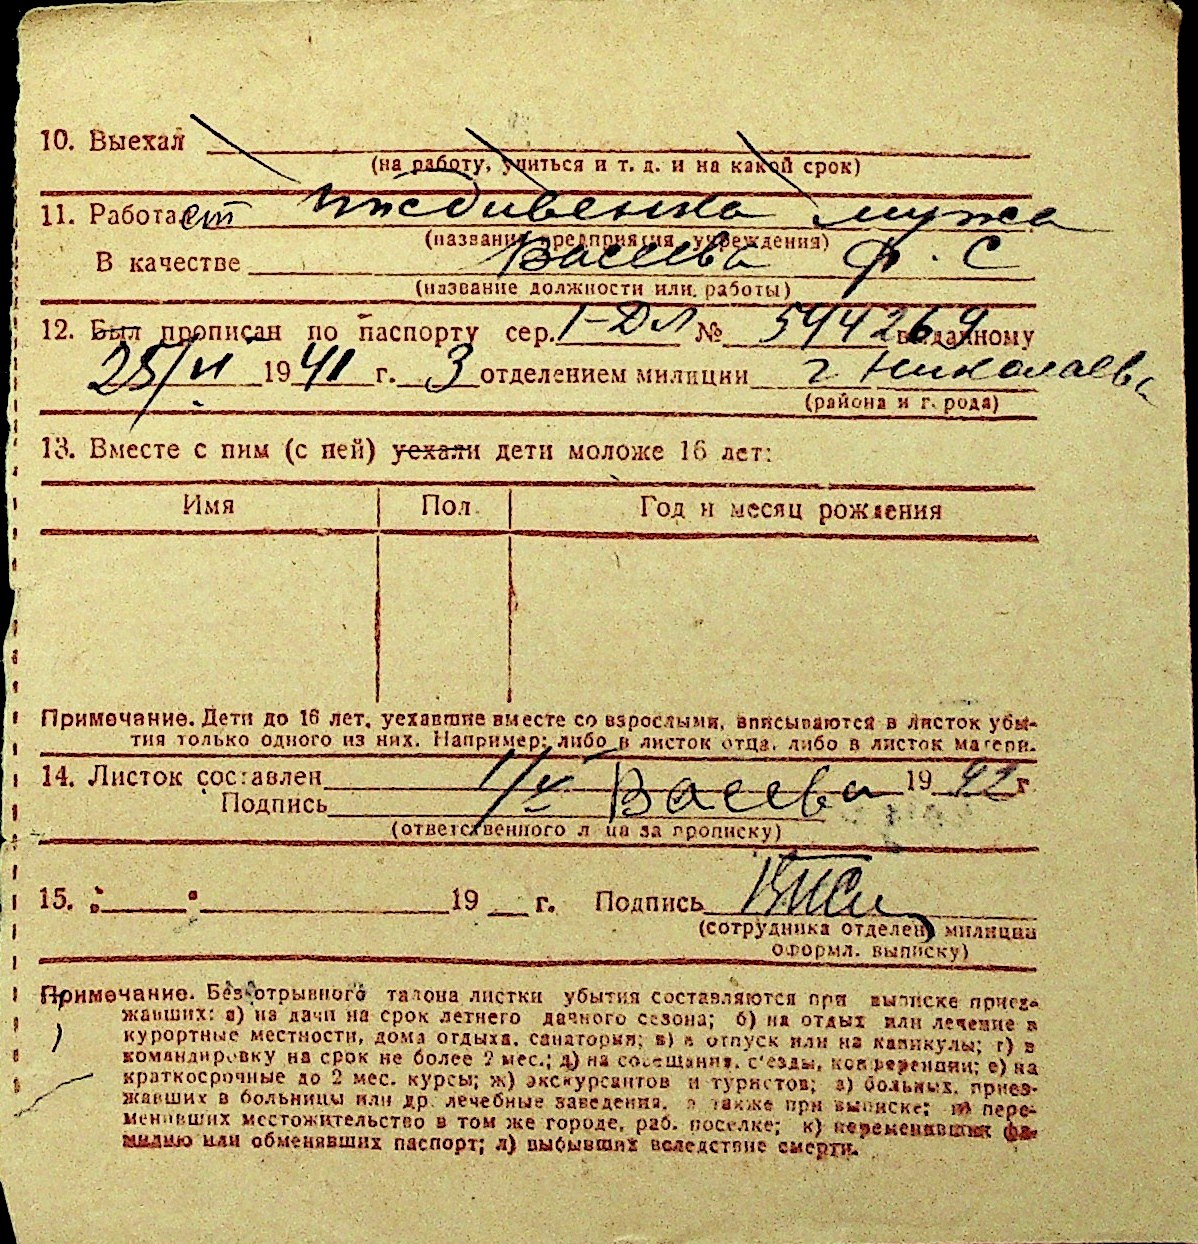 10. Выехал
(на работу, учиться и т. д. и на какой срок)
11. Работает иждивенка мужа
(название предприятия, учреждения)
В качестве Васева Ф. С
(название должности или работы)
12. Был прописан по паспорту сер. I-ДЛ № 544269 выданному
25/VI 1941 г. 3 отделением милиции г Николаева
(района и города)
13. Вместе с ним (с ней) уехали дети моложе 16 лет:
Имя Пол Год и месяц рождения
Примечание. Дети до 16 лет, уехавшие вместе со взрослыми, вписываются в листок убы-
тия только одного из них. Например: либо в листок отца, либо в листок матери.
14. Листок составлен 1/X 1942 г
Подпись Васева
(ответственного лица за прописку)
15. " " 19 г. Подпись
(сотрудника отделен. милиции
оформл. выписку)
Примечание. Без отрывного талона листки убытия составляются при выписке приез-
жавших: а) на дачи на срок летнего дачного сезона; б) на отдых или лечение в
курортные местности, дома отдыха, санатории; в) в отпуск или на каникулы; г) в
командировку на срок не более 2 мес.; д) на совещания, с'езды, конференции; е) на
краткосрочные до 2 мес. курсы; ж) экскурсантов и туристов; з) больных, приез-
жавших в больницы или др. лечебные заведения, а также при выписке; и) пере-
менивших местожительство в том же городе, раб. поселке; к) переменивших фа-
милию или обменявших паспорт; л) выбывших вследствие смерти.